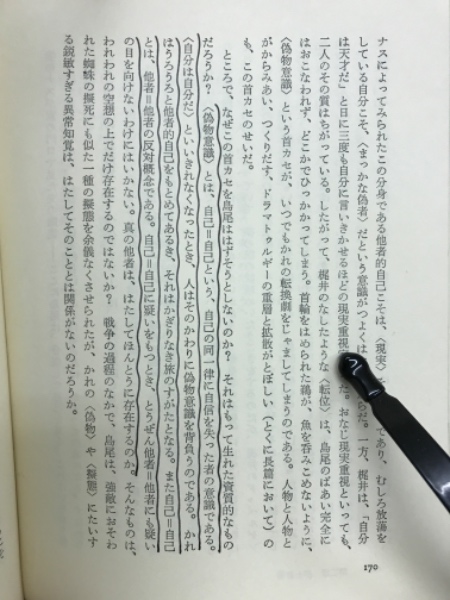 ナスによってみられたこの分身である他者的自己こそは、〈現実〉
であり、むしろ放蕩を
している自分こそ、〈まっかな偽者〉だという意識がつよくは
らだ。一方、梶井は、「自分
は天才だ」と日に三度も自分に言いきかせるほどの現実重視
た。おなじ現実重視といっても、
二人のその質はちがっている。したがって、梶井のなしたような〈転位〉は、島尾のばあい完全に
はおこなわれず、どこかでひっかかってしまう。首輪をはめられた鵜が、魚を呑みこめないように、
〈偽物意識〉という首カセが、いつでもかれの転換劇をじゃましてしまうのである。人物と人物と
がからみあい、つくりだす、ドラマトゥルギーの重層と拡散がとぼしい（とくに長篇において）の
も、この首カセのせいだ。
ところで、なぜこの首カセを島尾ははずそうとしないのか？　それはもって生れた資質的なもの
だろうか？　〈偽物意識〉とは、自己＝自己という、自己の同一律に自信を失った者の意識である。
〈自分は自分だ〉といいきれなくなったとき、人はそのかわりに偽物意識を背負うのである。かれ
はうろうろと他者的自己をもとめてあるき、それはかぎりなき旅のすがたとなる。また自己＝自己
とは、他者＝他者の反対概念である。自己＝自己に疑いをもつとき、とうぜん他者＝他者にも疑い
の目を向けないわけにはいかない。真の他者は、はたしてほんとうに存在するのか。そんなものは、
われわれの空想の上でだけ存在するのではないか？　戦争の過程のなかで、島尾は、強敵におそわ
れた蜘蛛の擬死にも似た一種の擬態を余儀なくさせられたが、かれの〈偽物〉や〈擬態〉にたいす
る鋭敏すぎる異常知覚は、はたしてそのこととは関係がないのだろうか。
170